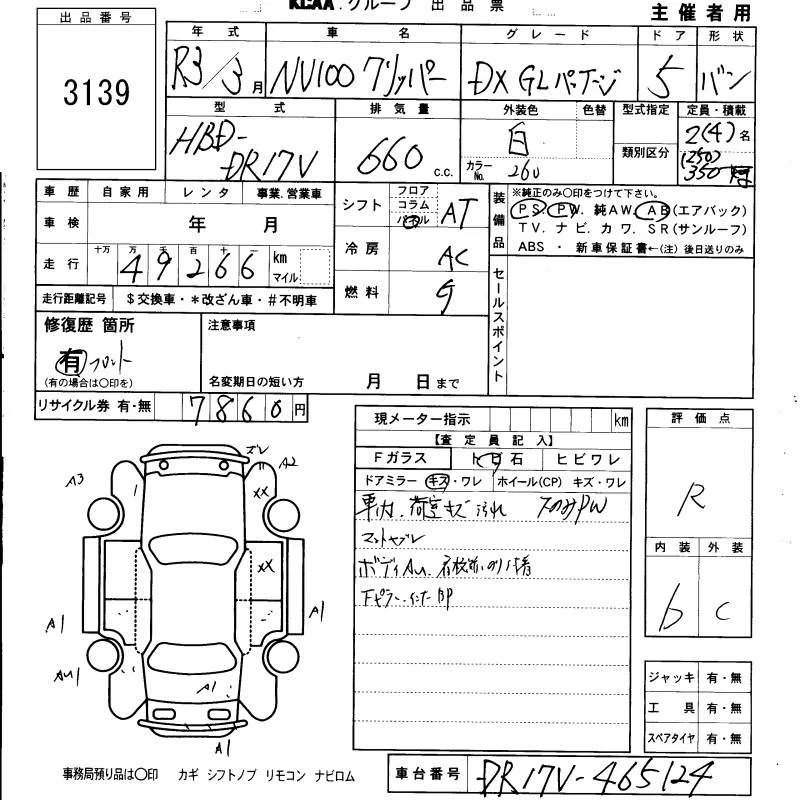 KCAA グループ 出品票
主催者用
出品番号
3139
年式 車名 グレード ドア 形状
R3/3月 NV100 クリッパー DX GLパッケージ 5 バン
型式 排気量 外装色 色替 型式指定 定員・積載
HBD-DR17V 660 c.c. 白 カラーNo. 260 類別区分 2(4)名 (250) 350
車歴 自家用 レンタ 事業.営業車
シフト フロア コラム パネル AT
装備品 ※純正のみ〇印をつけて下さい。
PS. PW. 純AW. AB(エアバック)
TV. ナビ. カワ. SR(サンルーフ)
ABS ・ 新車保証書←(注) 後日送りのみ
車検 年 月
冷房 AC
走行 十万 万 千 百 十 一 49266 km マイル
燃料 G
セールスポイント
走行距離記号 $交換車・*改ざん車・#不明車
修復歴 箇所
有 フロント
(有の場合は〇印を)
注意事項
名変期日の短い方 月 日まで
リサイクル券 有・無 7860円
現メーター指示 km
【査定員記入】
Fガラス 飛石 ヒビワレ
ドアミラー キズ・ワレ ホイール(CP) キズ・ワレ
車内.荷室キズ汚れ
ボディAu.
評価点
R
内装 外装
b C
ズレ
A3
A2
XX
XX
A1
A1
AU1
A1
A1
ジャッキ 有・無
工具 有・無
スペアタイヤ 有・無
事務局預り品は〇印 カギ シフトノブ リモコン ナビロム
車台番号 DR17V-465124